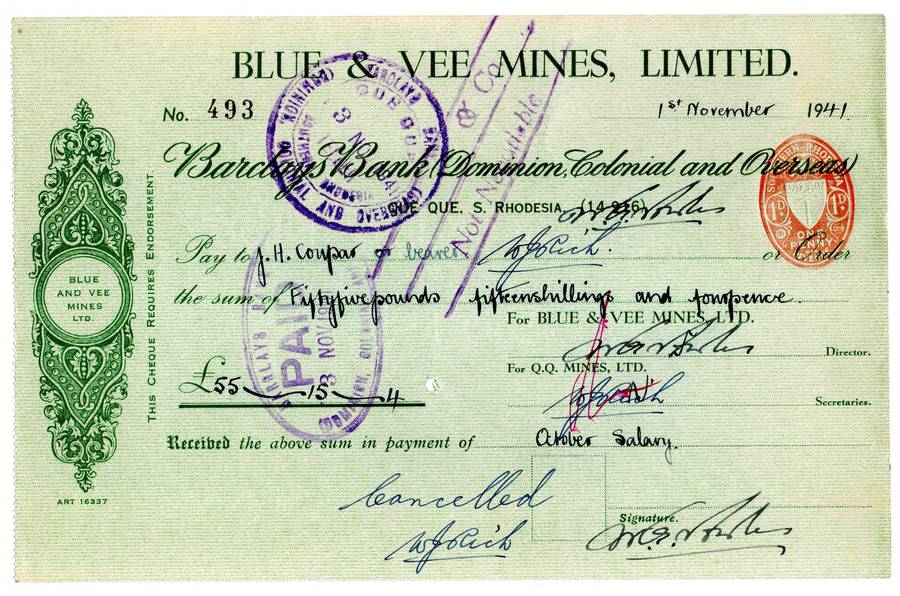 BLUE & VEE MINES, LIMITED.
No. 493
1st November 1941.
Barclays Bank (Dominion, Colonial and Overseas)
QUE QUE, S. RHODESIA.
ONE PENNY
1D 1D
& Co
Not Negotiable
Pay to J. H. Coupar or bearer or Order
the sum of Fiftyfivepounds fifteenshillings and fourpence.
For BLUE & VEE MINES, LTD.
Director.
For Q.Q. MINES, LTD.
Secretaries.
£55 - 15 - 4
PAID
3 NOV
Received the above sum in payment of October Salary.
Cancelled
Signature.
THIS CHEQUE REQUIRES ENDORSEMENT
BLUE
AND VEE
MINES
LTD.
ART 16337